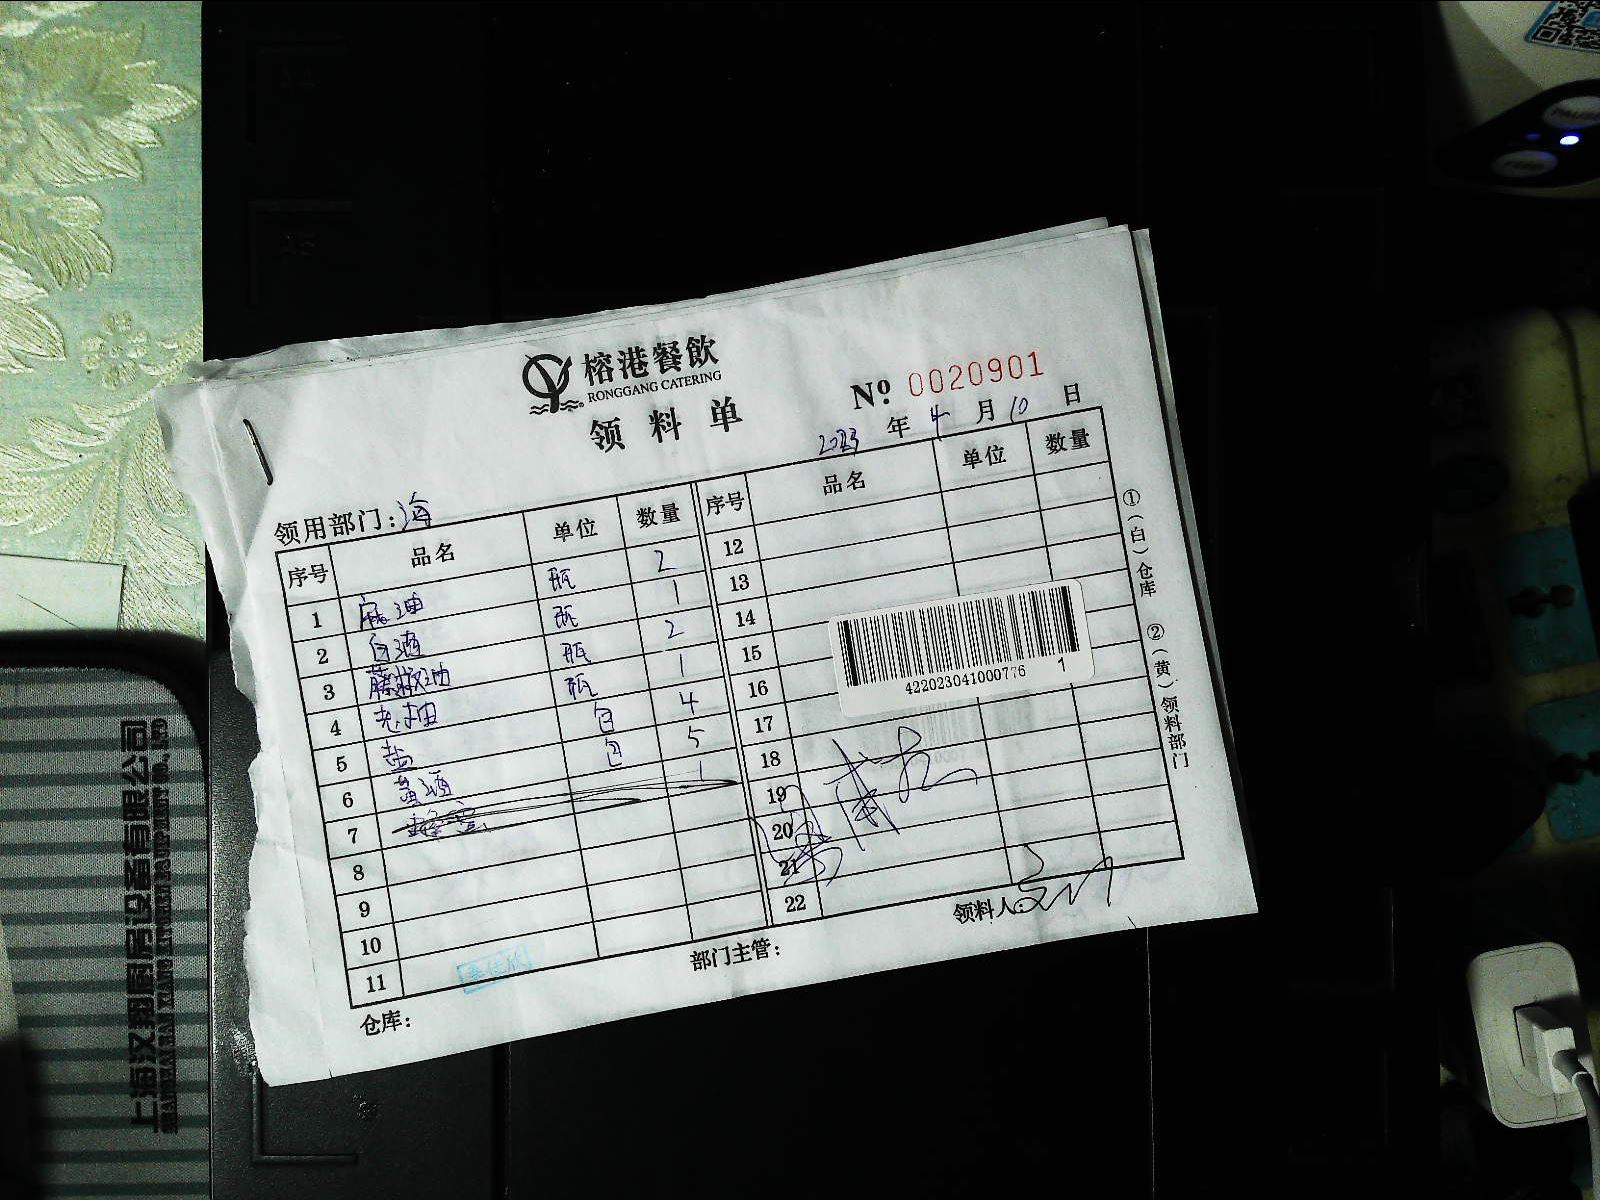 榕港餐飲
RONGGANG CATERING
领料单
№ 0020901
2023 年 4 月 10 日
领用部门:海
序号 品名 单位 数量 序号 品名 单位 数量
1 麻油 瓶 2 12
2 白酒 瓶 1 13
3 藤椒油 瓶 2 14
4 老抽 瓶 1 15
5 盐 包 4 16
6 黄酒 包 5 17
7 蜂蜜 1 18
8 19
9 20
10 21
11 22
422023041000776 1
仓库:
部门主管:
领料人:
①(白)仓库 ②(黄)领料部门
上海汉翔厨房设备有限公司